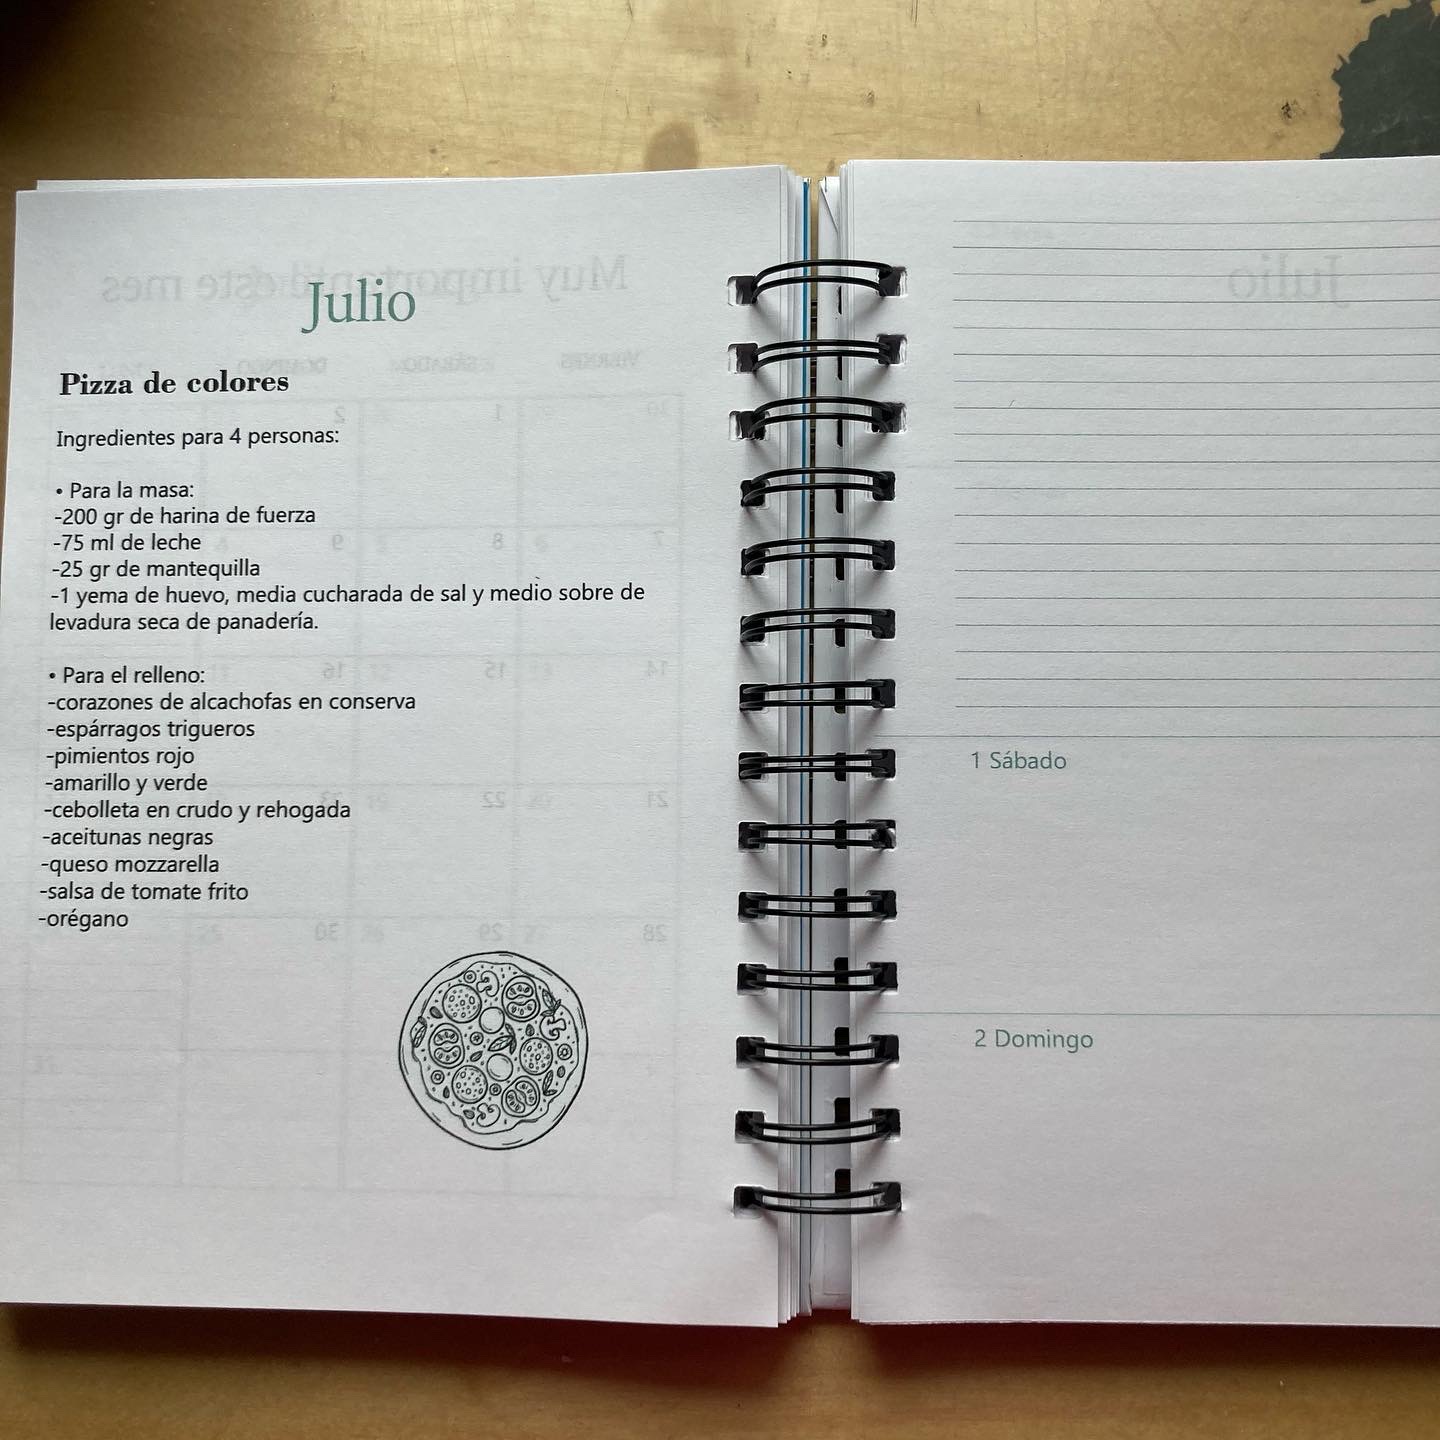 Julio
Pizza de colores
Ingredientes para 4 personas:
• Para la masa:
-200 gr de harina de fuerza
-75 ml de leche
-25 gr de mantequilla
-1 yema de huevo, media cucharada de sal y medio sobre de
levadura seca de panadería.
• Para el relleno:
-corazones de alcachofas en conserva
-espárragos trigueros
-pimientos rojo
-amarillo y verde
-cebolleta en crudo y rehogada
-aceitunas negras
-queso mozzarella
-salsa de tomate frito
-orégano
1 Sábado
2 Domingo